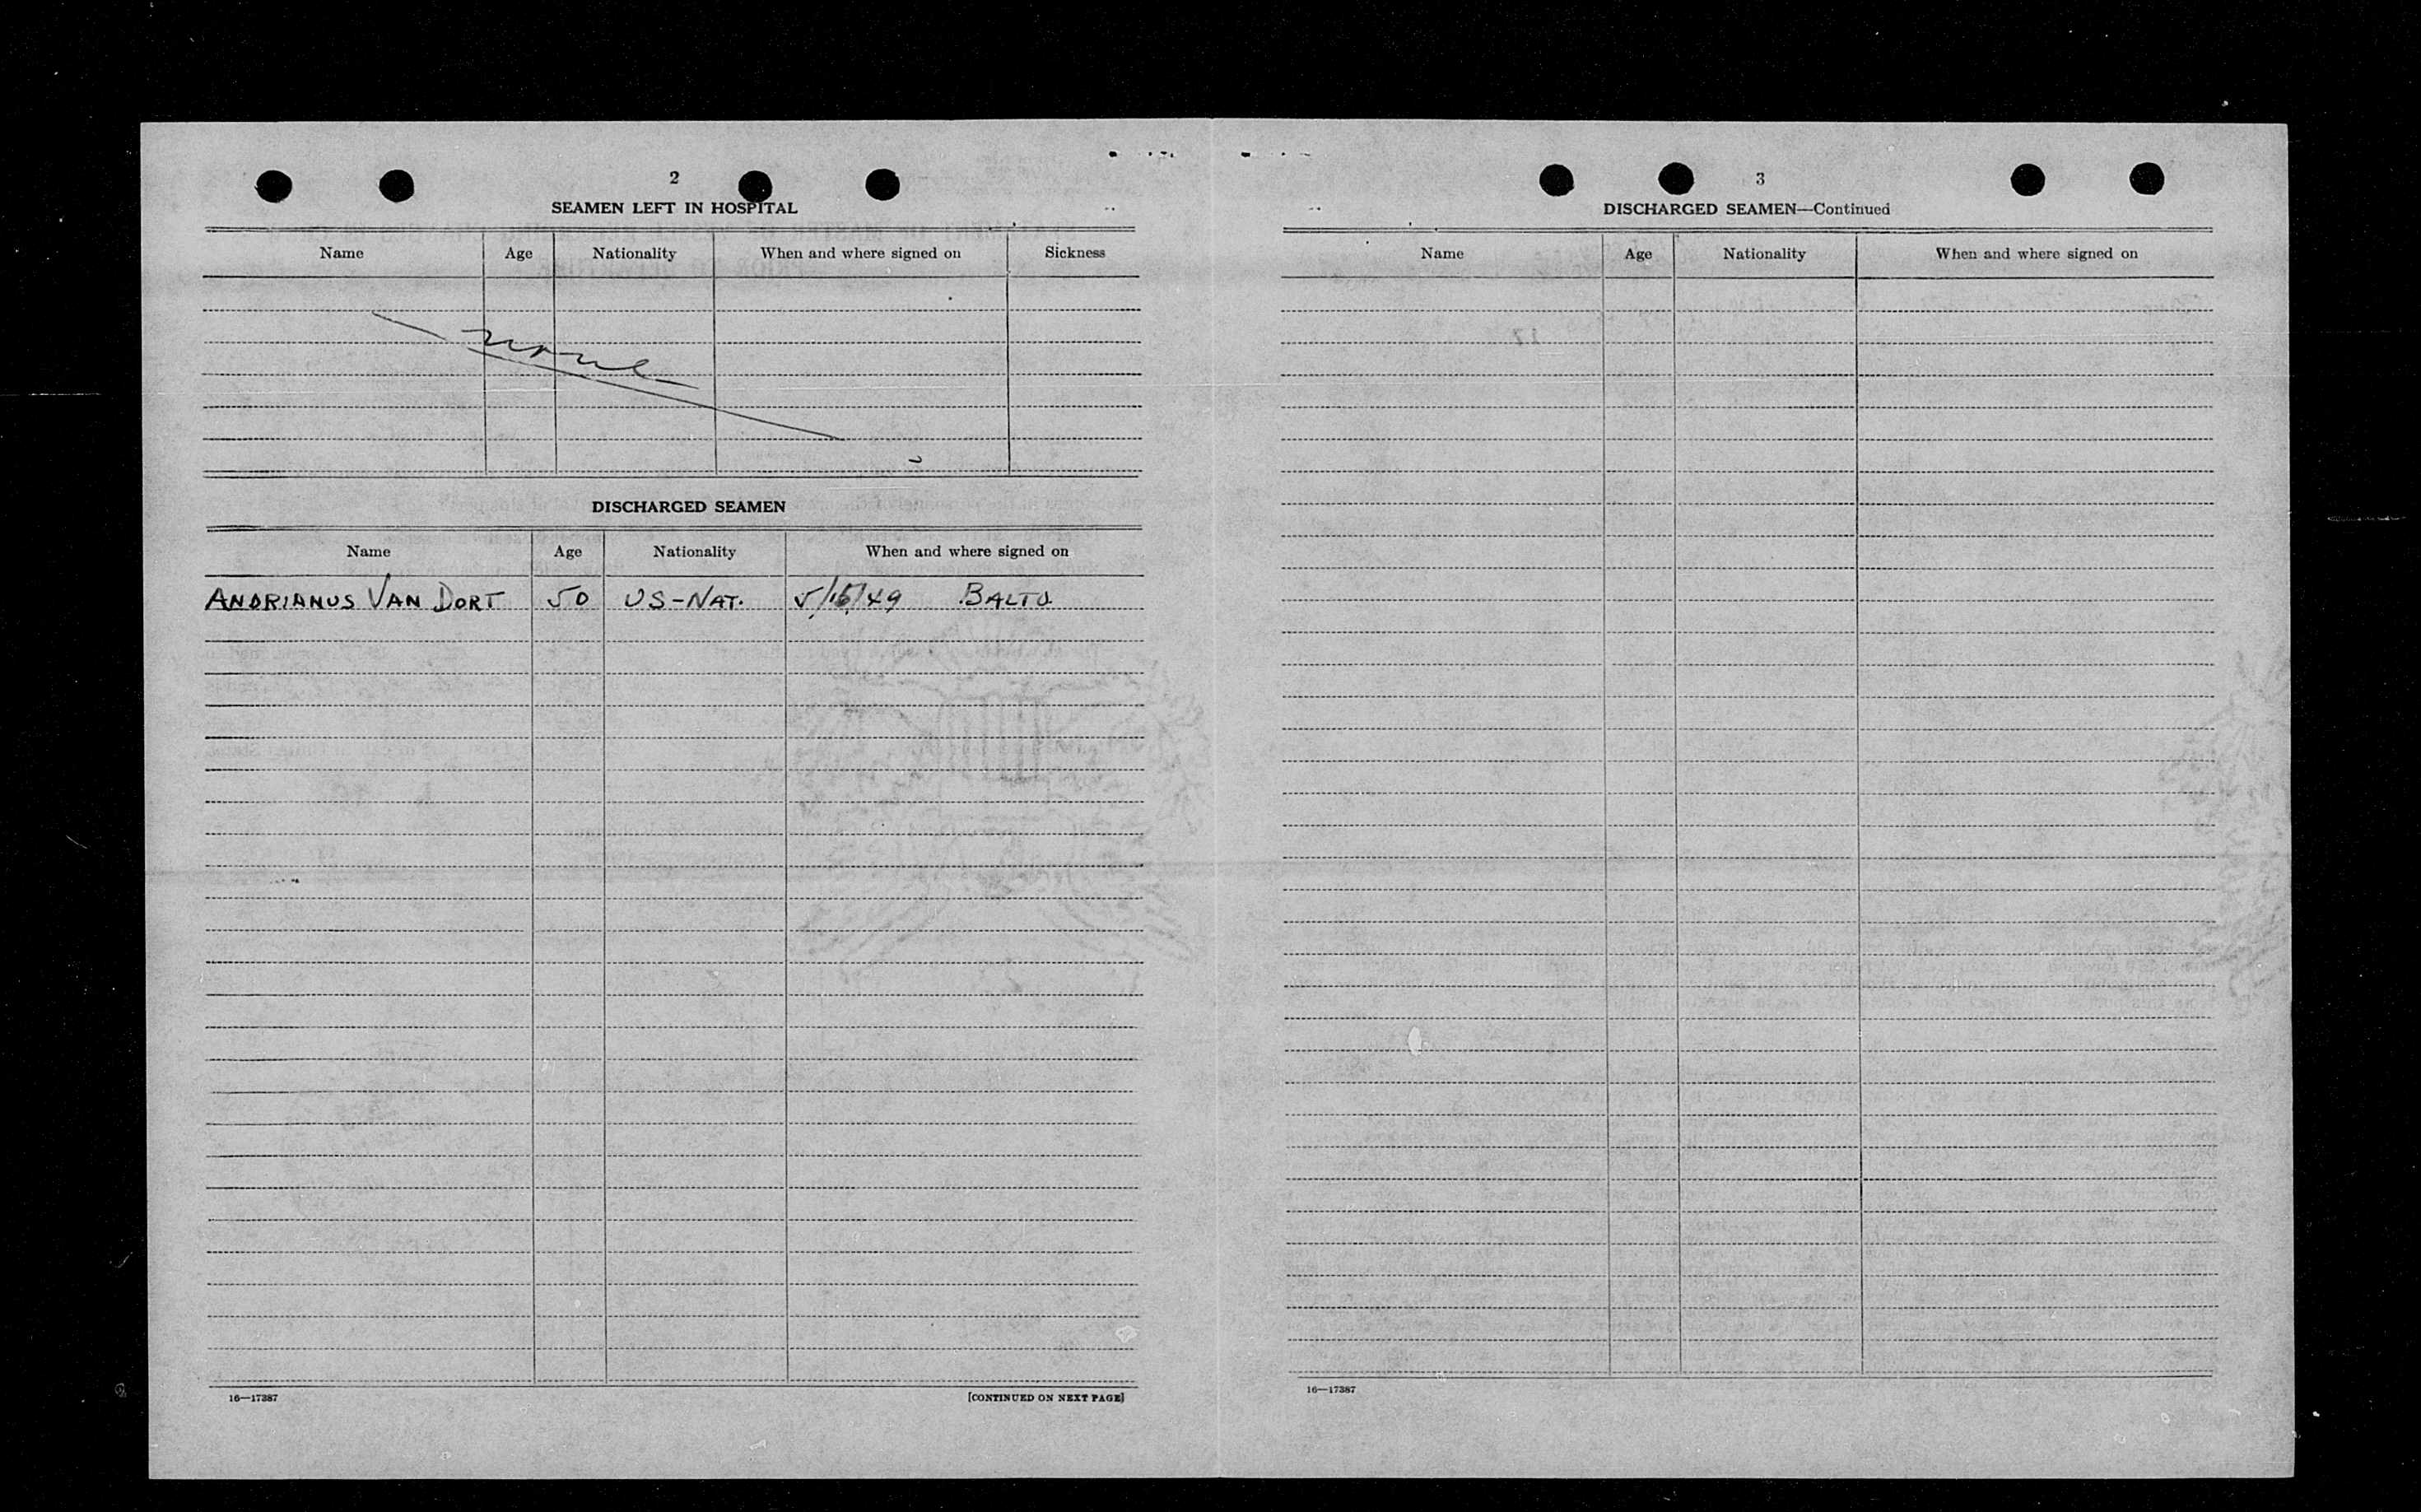 2
SEAMEN LEFT IN HOSPITAL
Name Age Nationality When and where signed on Sickness
none
DISCHARGED SEAMEN
Name Age Nationality When and where signed on
ANDRIANUS VAN DORT 50 US-NAT. 5/15/49 BALTO
16—17387 [CONTINUED ON NEXT PAGE]
3
DISCHARGED SEAMEN—Continued
Name Age Nationality When and where signed on
16—17387